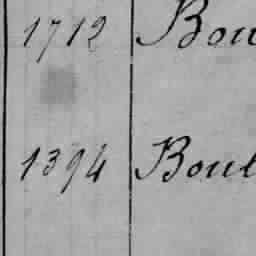 1712 Bou
1394 Boul